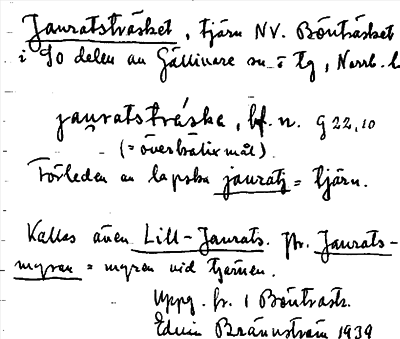 Jauratsträsket, tjärn NV. Bönträsket
i So delen av Gällivare sn o tg, Norrb. l
jauratstráska, bf. n. G 22, 10
(= överkalix mål).
Förleden av lapska jauratj = tjärn.
Kallas även Lill-Jaurats. Jfr. Jaurats-
myran = myren vid tjärnen.
Uppg. fr. i Bönträsk.
Edvin Brännström 1939